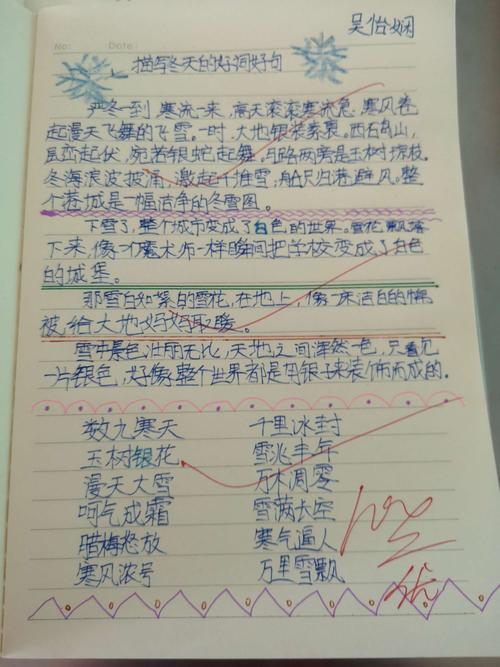 吴怡娴
No: Date:
描写冬天的好词好句
严冬一到,寒流一来,高天滚滚寒流急,寒风卷
起漫天飞舞的飞雪。一时,大地银装素裹。西石岛山,
蜿蜒起伏,宛若银蛇起舞。马路两旁是玉树琼枝。
冬海浪波披涌,激起千堆雪,船只归港避风。整
个港城是一幅洁净的冬雪图。
下雪了,整个城市变成了白色的世界。雪花飘落
下来,像一个魔术师一样瞬间把学校变成了白色
的城堡。
那雪白如絮的雪花,在地上,像一床洁白的棉
被,给大地妈妈取暖。
雪中景色壮丽无比,天地之间浑然一色,只看见
一片银色,好像整个世界都是用银子来装饰而成的。
数九寒天 千里冰封
玉树银花 雪兆丰年
漫天大雪 万木凋零
呵气成霜 雪满长空
腊梅怒放 寒气逼人
寒风浓号 万里雪飘
100
优